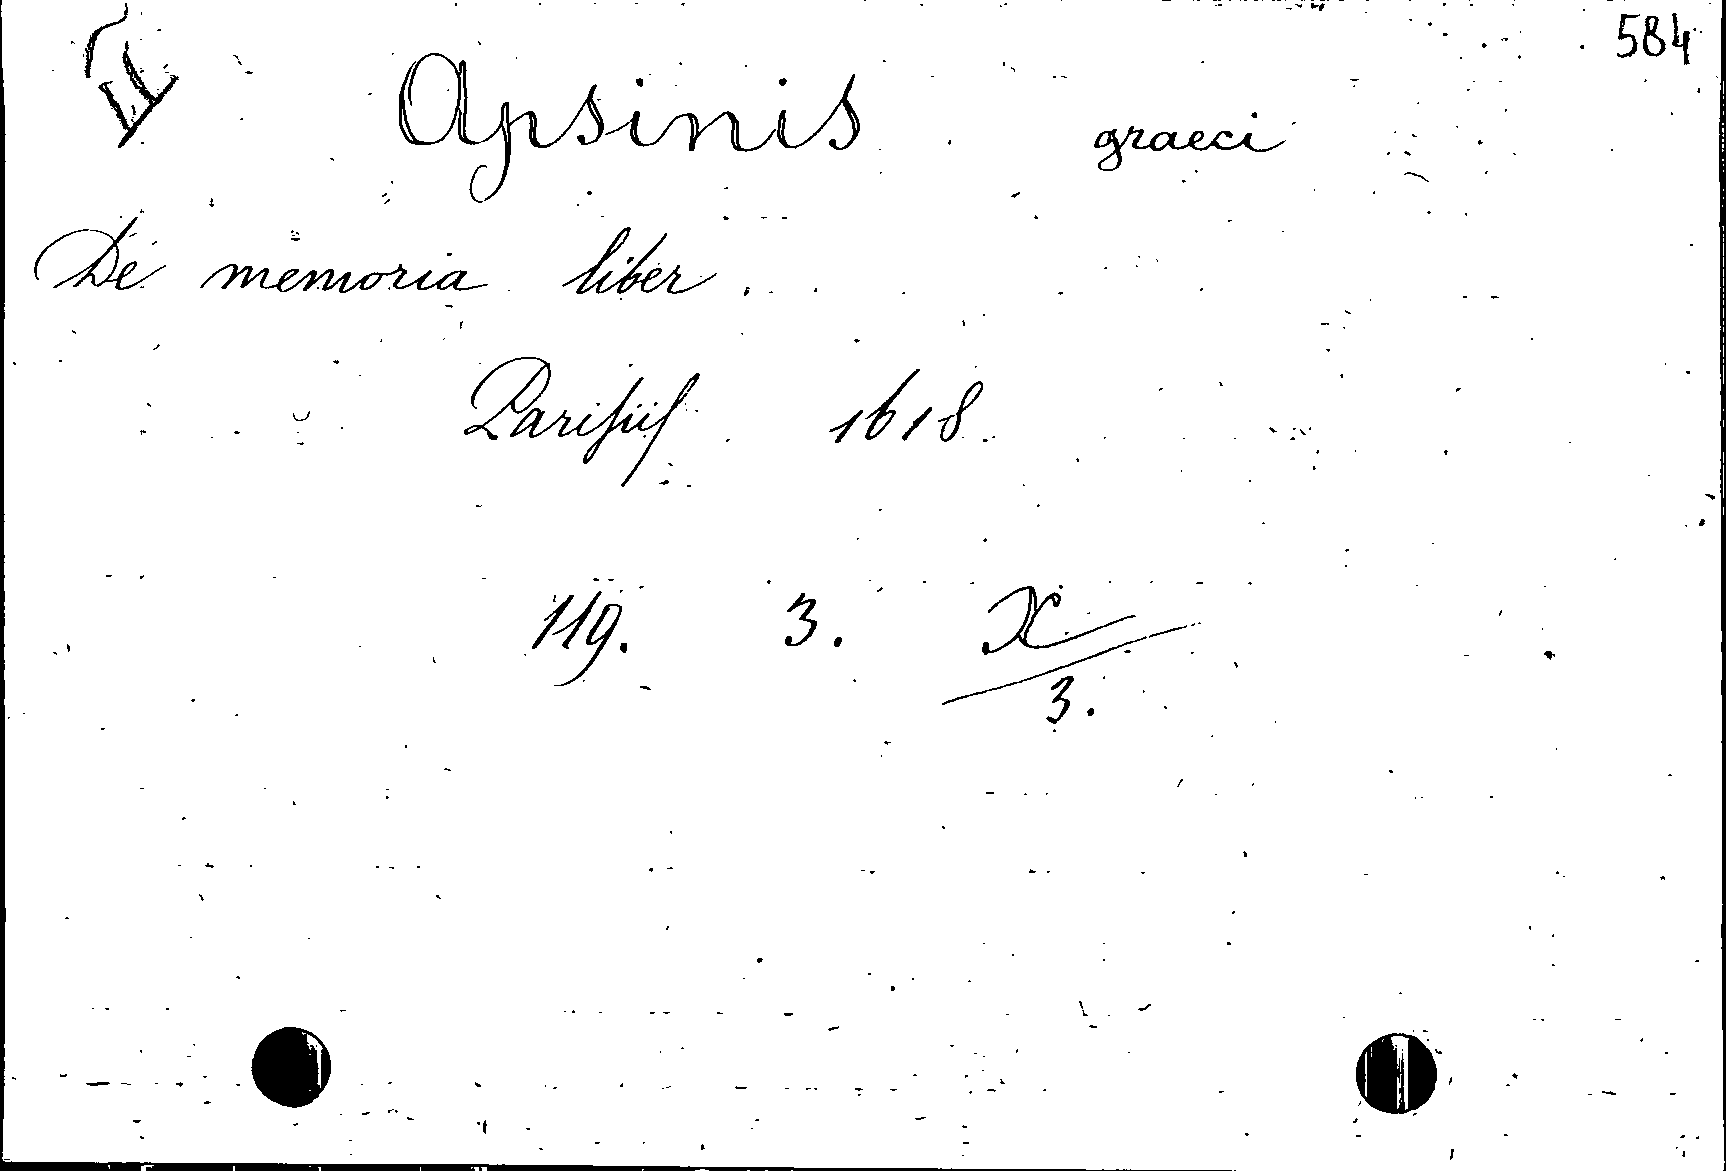 584
Apsinis graeci
De memoria liber.
Parisiis 1618
119. 3. X
3.